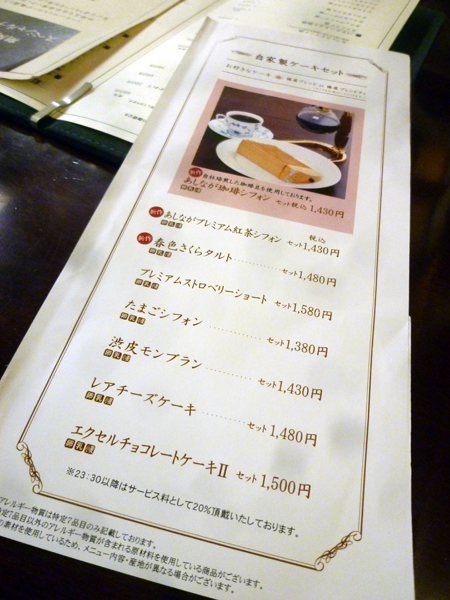 自家製ケーキセット
自社焙煎した珈琲豆を使用しております。
あしなが珈琲シフォン セット税込1,430円
卵乳小麦
税込
あしながプレミアム紅茶シフォン セット1,430円
卵乳小麦
春色さくらタルト セット1,480円
卵乳小麦
プレミアムストロベリーショート セット1,580円
卵乳小麦
たまごシフォン セット1,380円
卵乳小麦
渋皮モンブラン セット1,430円
卵乳小麦
レアチーズケーキ セット1,480円
卵乳小麦
エクセルチョコレートケーキⅡ セット1,500円
卵乳小麦
※23:30以降はサービス料として20%頂戴いたしております。
アレルギー物質は特定7品目のみ記載しております。
特定7品目以外のアレルギー物質が含まれる原材料を使用している商品がございます。
の素材を使用しているため、メニュー内容・産地が異なる場合がございます。